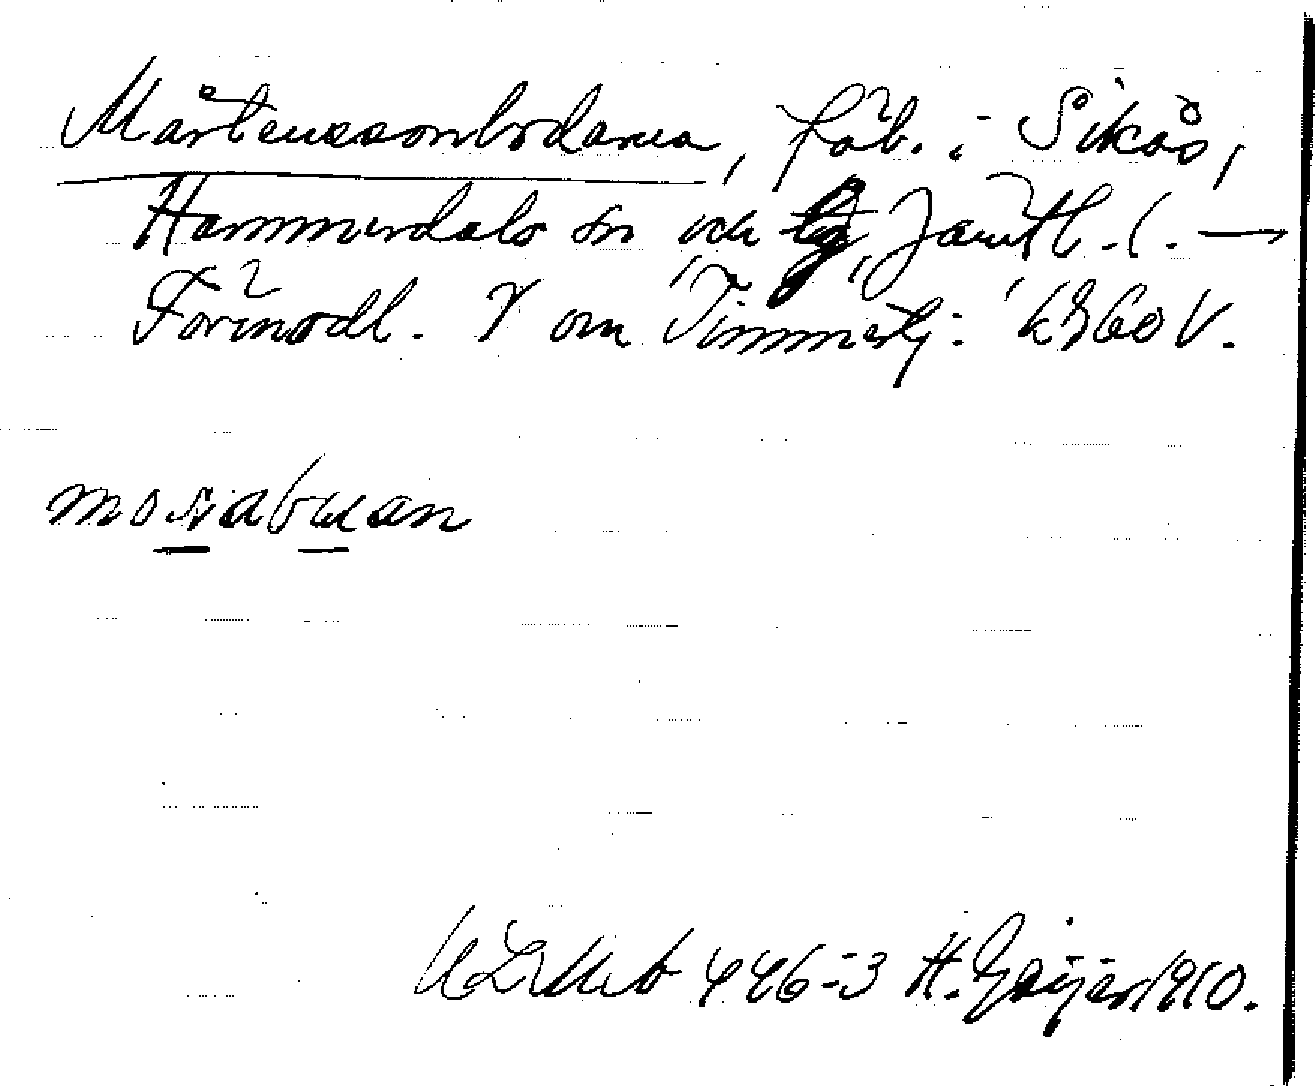 Mårtenssonbodarna, fäb. i Sikås,
Hammerdals sn och tg, Jämtl. l. →
Förmodl. V om Timmertj:
mosabuan
ULMA 446:3 H. Geijer 1910.